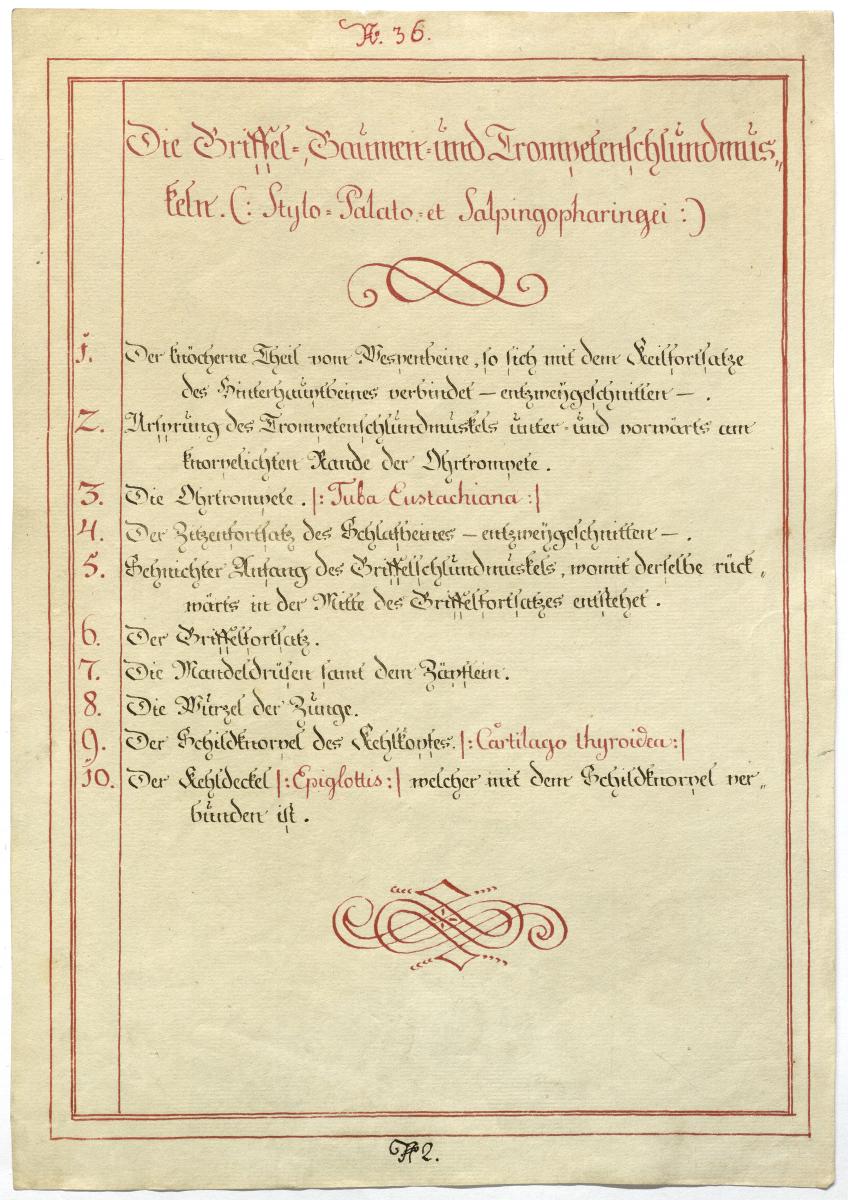 N. 36.
Die Griffel-, Gaumen- und Trompetenschlundmus„
keln. (: Stylo- Palato- et Salpingopharingei :)
1. Der knöcherne Theil vom Wespenbeine, so sich mit dem Keilfortsatze
des Hinterhauptbeines verbindet – entzweÿgeschnitten – .
2. Ursprung des Trompetenschlundmuskels unter- und vorwärts am
knorpelichten Rande der Ohrtrompete.
3. Die Ohrtrompete. |: Tuba Eustachiana :|
4. Der Zitzenfortsatz des Schlafbeines – entzweÿgeschnitten – .
5. Sehnichter Anfang des Griffelschlundmuskels, womit derselbe rück„
wärts in der Mitte des Griffelfortsatzes entstehet.
6. Der Griffelfortsatz.
7. Die Mandeldrüsen samt dem Zäpflein.
8. Die Wurzel der Zunge.
9. Der Schildknorpel des Kehlkopfes. |: Cartilago thyroidea :|
10. Der Kehldeckel |: Epiglottis :| welcher mit dem Schildknorpel ver„
bunden ist.
2.